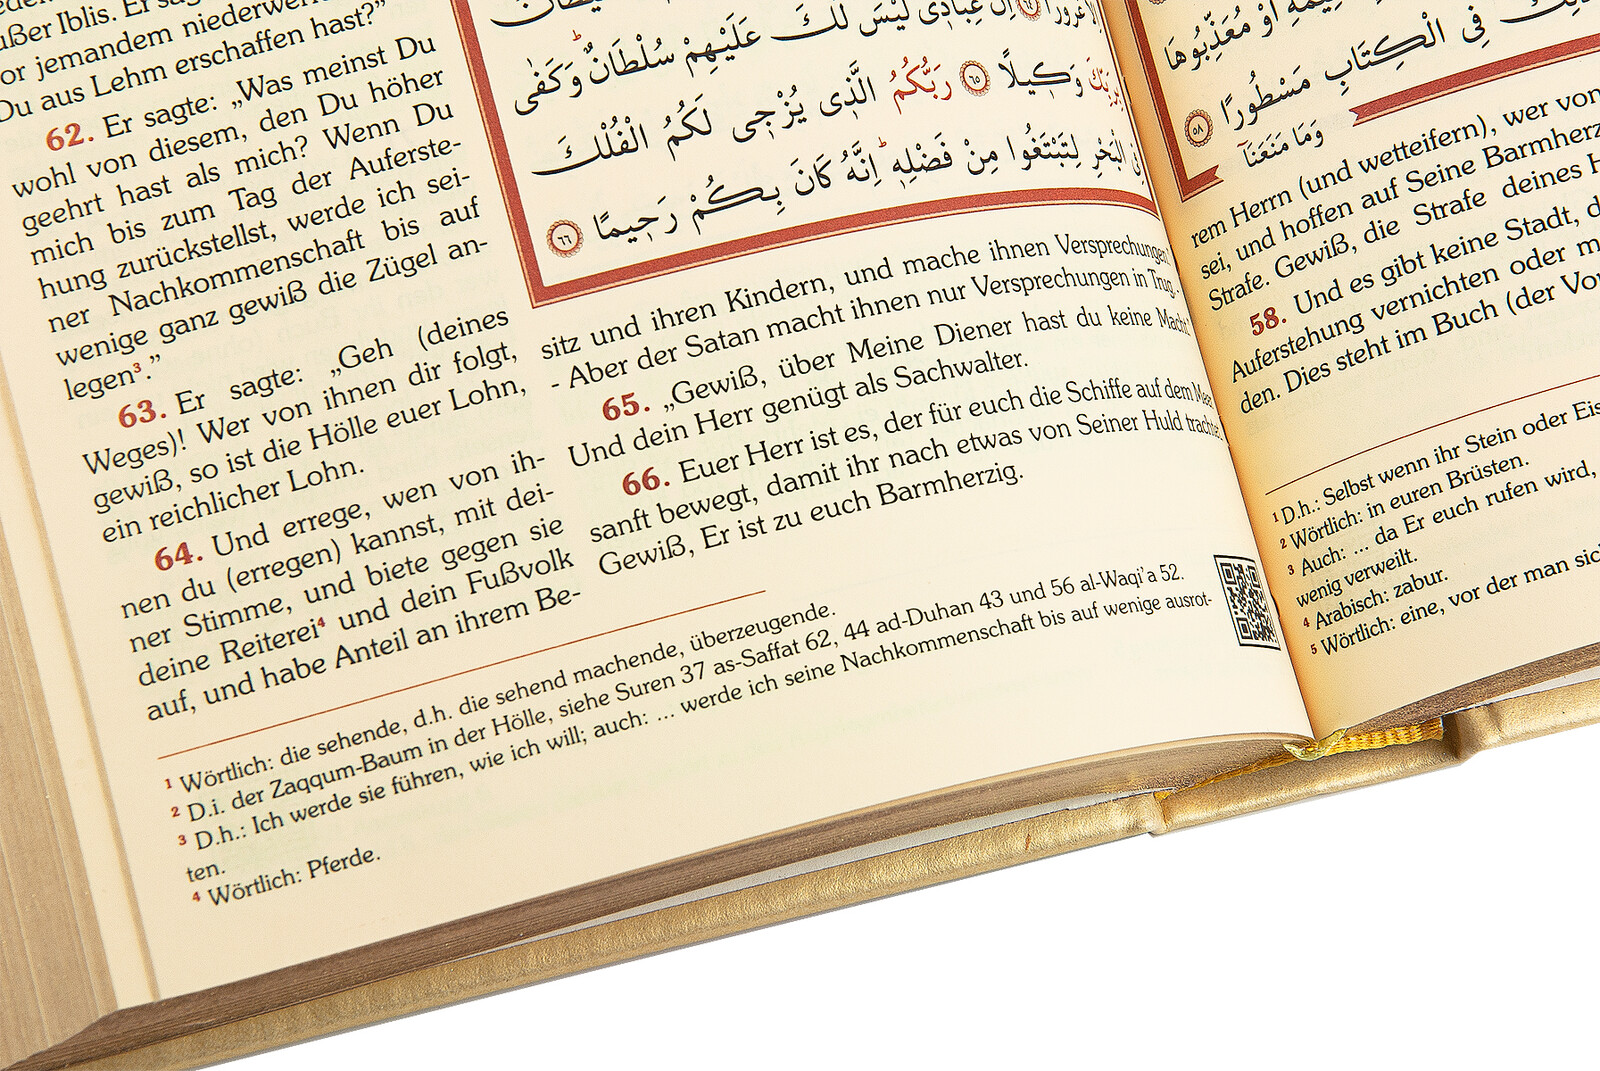 ußer Iblis. Er
or jemandem niederwer
Du aus Lehm erschaffen hast?”
62. Er sagte: „Was meinst Du
wohl von diesem, den Du höher
geehrt hast als mich? Wenn Du
mich bis zum Tag der Auferste-
hung zurückstellst, werde ich sei-
ner Nachkommenschaft bis auf
wenige ganz gewiß die Zügel an-
legen³.”
63. Er sagte: „Geh (deines
Weges)! Wer von ihnen dir folgt,
gewiß, so ist die Hölle euer Lohn,
ein reichlicher Lohn.
64. Und errege, wen von ih-
nen du (erregen) kannst, mit dei-
ner Stimme, und biete gegen sie
deine Reiterei⁴ und dein Fußvolk
auf, und habe Anteil an ihrem Be-
إِنَّ عِبَادِى لَيْسَ لَكَ عَلَيْهِمْ سُلْطَانٌ وَكَفٰى
بِرَبِّكَ وَكِيلًا ٦٥ رَبُّكُمُ الَّذِى يُزْجِى لَكُمُ الْفُلْكَ
فِى الْبَحْرِ لِتَبْتَغُوا مِنْ فَضْلِهٖ اِنَّهُ كَانَ بِكُمْ رَحِيمًا ٦٦
sitz und ihren Kindern, und mache ihnen Versprechungen!
- Aber der Satan macht ihnen nur Versprechungen in Trug. -
65. „Gewiß, über Meine Diener hast du keine Macht.”
Und dein Herr genügt als Sachwalter.
66. Euer Herr ist es, der für euch die Schiffe auf dem
sanft bewegt, damit ihr nach etwas von Seiner Huld trachtet.
Gewiß, Er ist zu euch Barmherzig.
1 Wörtlich: die sehende, d.h. die sehend machende, überzeugende.
2 D.i. der Zaqqum-Baum in der Hölle, siehe Suren 37 as-Saffat 62, 44 ad-Duhan 43 und 56 al-Waqi’a 52.
3 D.h.: Ich werde sie führen, wie ich will; auch: ... werde ich seine Nachkommenschaft bis auf wenige ausrot-
ten.
4 Wörtlich: Pferde.
اَوْ مُعَذِّبُوهَا
فِى الْكِتَابِ مَسْطُورًا ٥٨
وَمَا مَنَعَنَا
rem Herrn (und wetteifern), wer von
sei, und hoffen auf Seine Barmherz
Strafe. Gewiß, die Strafe deines H
58. Und es gibt keine Stadt, d
Auferstehung vernichten oder m
den. Dies steht im Buch (der Vo
1 D.h.: Selbst wenn ihr Stein oder Eis
2 Wörtlich: in euren Brüsten.
3 Auch: ... da Er euch rufen wird,
wenig verweilt.
4 Arabisch: zabur.
5 Wörtlich: eine, vor der man sic